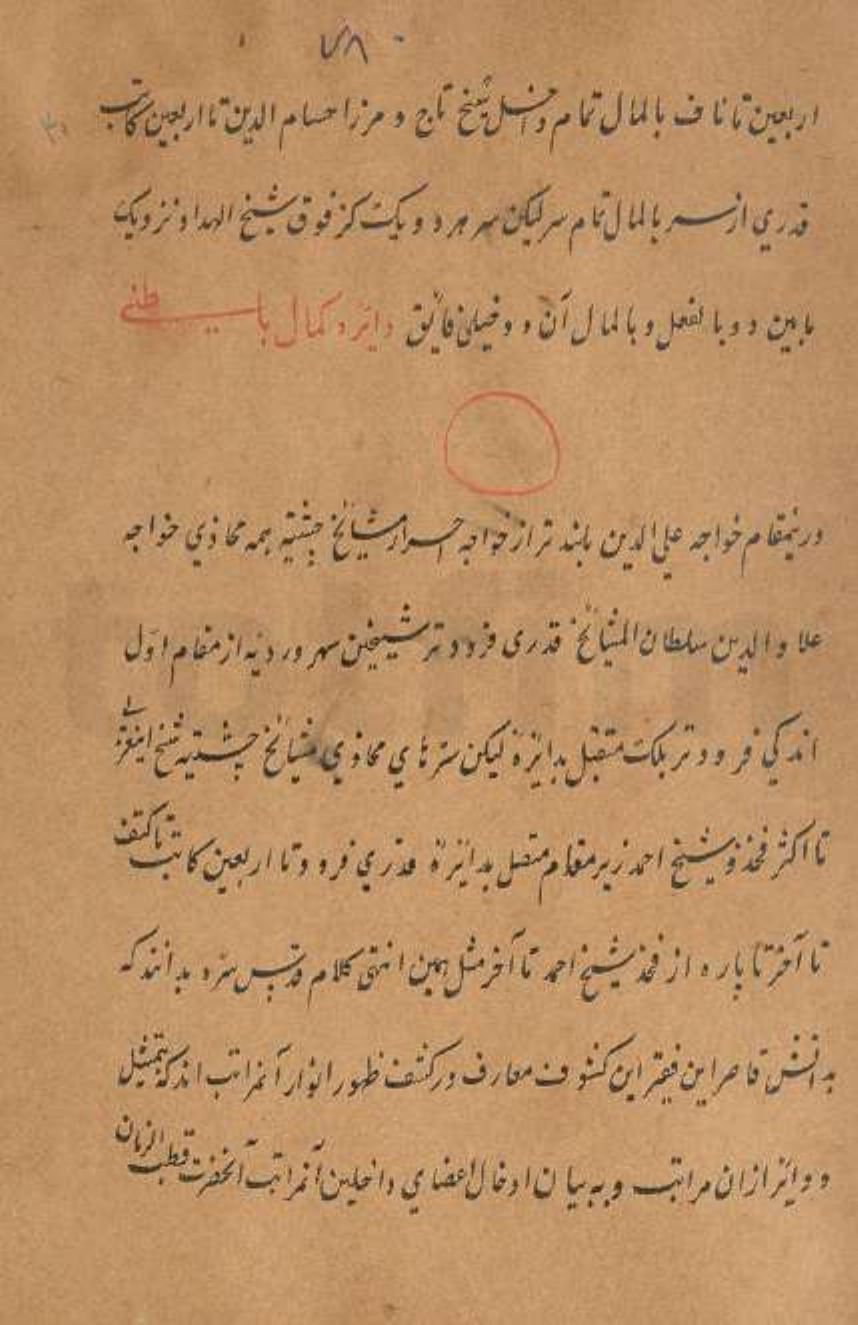 ۷۸
اربعین تا ناف بالمال تمام داخل شیخ تاج و مرزا حسام الدین تا اربعین کاتب
قدری از سر بالمال تمام سر لیکن سر هر دو یک کز فوق شیخ الهداد نزدیک
مابین دو بالفعل و بالمال آن دو خیلی فایق دایره کمال باطنی
درینمقام خواجه علی الدین بلند تر از خواجه احرار مشایخ چشتیه همه محاذی خواجه
علاو الدین سلطان المشایخ قدری فرود تر شیخین سهروردیه از مقام اول
اندکی فرود تر بلک متصل بدایره لیکن سرهای محاذی مشایخ چشتیه شیخ
تا اکثر فخذ و شیخ احمد زیر مقام متصل بدایره قدری فرود تا اربعین کاتب تا کتف
تا آخر تا پاره از فخذ شیخ احمد تا آخر مثل همین انتهی کلام قدس سره بدانند که
بدانش قاصر این فقیر این کشوف معارف در کشف ظهور انوار آنمراتب اند که بتمثیل
دوایر ازان مراتب و به بیان ادخال اعضای داخلین آنمراتب آنحضرت قطب الزمان